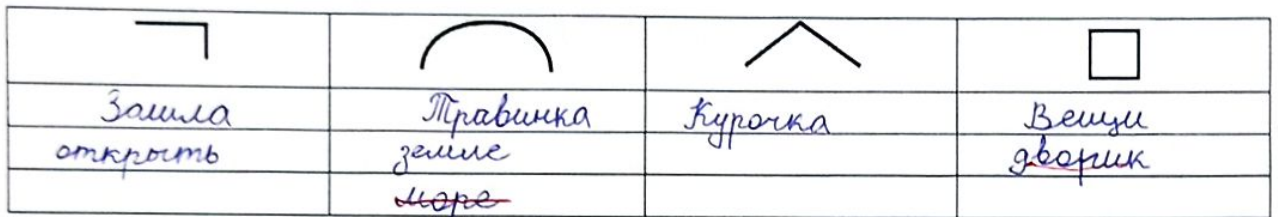 Зашла Травинка Курочка Вещи
открыть земле дворик
море